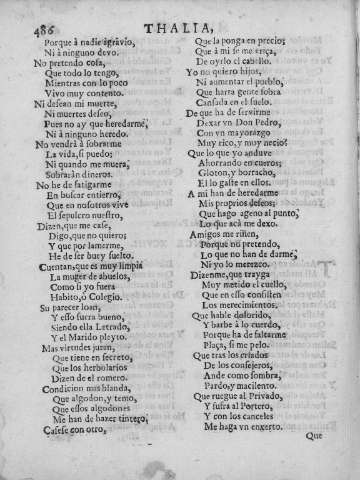 486
THALIA,
Porque à nadie agravio,
Ni à ninguno devo.
No pretendo cosa,
Que todo lo tengo,
Mientras con lo poco
Vivo muy contento.
Ni desean mi muerte,
Ni muertes deseo,
Pues no ay que heredarme,
Ni à ninguno heredo.
No vendrá à sobrarme
La vida, si puedo;
Ni quando me muera,
Sobrarán dineros.
No he de fatigarme
En buscar entierro,
Que en nosotros vive
El sepulcro nuestro,
Dizen, que me case,
Digo, que no quiero;
Y que por lamerme,
He de ser buey suelto.
Cuentan, que es muy limpia
La muger de abuelos,
Como si yo fuera
Habito, ò Colegio.
Su parecer loan,
Y esso fuera bueno,
Siendo ella Letrado,
Y el Marido pleyto.
Mas virtudes juran,
Que tiene en secreto,
Que los herbolarios
Dizen de el romero.
Condicion mas blanda,
Que algodon, y temo,
Que essos algodones
Me han de hazer tintero.
Casese con otro,
Que la ponga en precio;
Que à mi se me eriça,
De oyrlo el cabello.
Yo no quiero hijos,
Ni aumentar el pueblo,
Que harta gente sobra
Cansada en el suelo.
De que ha de servirme
Dexar vn Don Pedro,
Con vn mayorazgo
Muy rico, y muy necio?
Que lo que yo anduve
Ahorrando en cueros;
Gloton, y borracho,
El lo gaste en ellos.
A mi han de heredarme
Mis proprios deseos;
Que hago ageno al punto,
Lo que acà me dexo.
Amigos me riñen,
Porque no pretendo,
Lo que no han de darme,
Ni yo lo merezco.
Dizenme, que trayga
Muy metido el cuello,
Que en esso consisten
Los merecimientos.
Que hable dolorido,
Y barbe à lo cuerdo,
Porque ha de faltarme
Plaça, si me pelo.
Que tras los criados
De los consejeros,
Ande como sombra,
Pardo, y macilento.
Que ruegue al Privado,
Y sufra al Portero,
Y con los canceles
Me haga vn enxerto.
Que